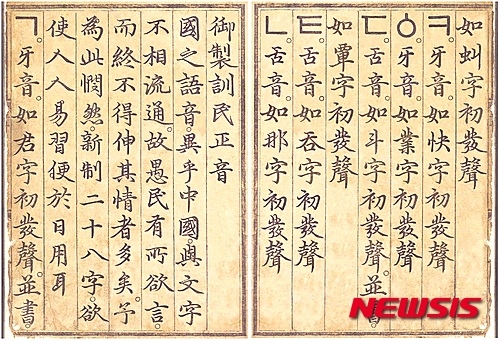 御製訓民正音
國之語音。異乎中國。與文字
不相流通。故愚民有所欲言。
而終不得伸其情者多矣。予
為此憫然。新制二十八字。欲
使人人易習便於日用耳
ㄱ。牙音。如君字初發聲。並書。
如虯字初發聲
ㅋ。牙音。如快字初發聲
ㆁ。牙音。如業字初發聲
ㄷ。舌音。如斗字初發聲。並書。
如覃字初發聲
ㅌ。舌音。如呑字初發聲
ㄴ。舌音。如那字初發聲
NEWSIS